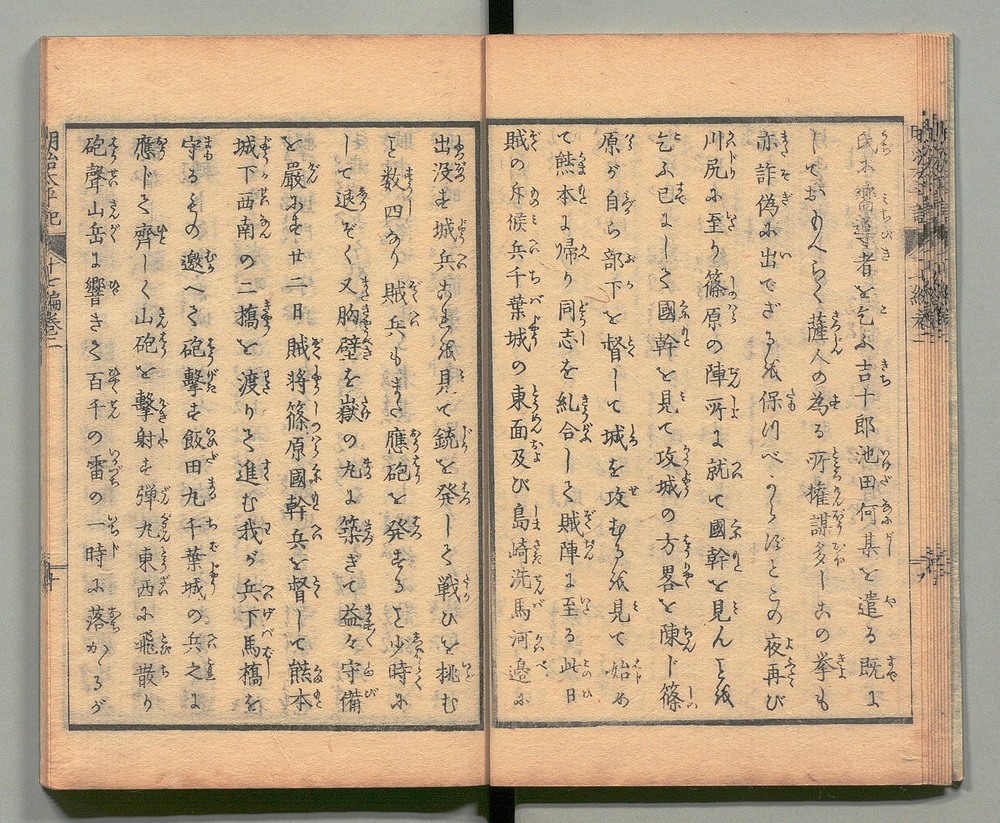 者を乞ふ吉十郎池田何某を遣る既に
して薩人の為る所権謀多しこの挙も
亦詐偽に出でざるを保つべからずとこの夜再び
川尻に至り篠原の陣所に就て國幹を見んことを
乞ふ已にして國幹を見て攻城の方畧を陳じ篠
原が自ら部下を督して城を攻むるを見て始め
て熊本に帰り同志を糺合して賊陣に至る此日
賊の斥候兵千葉城の東面及び島崎洗馬河邉に
出没す城兵これを見て銃を発して戦ひを挑む
こと数四なり賊兵もまた應砲を発すること少時に
して退ぞく又胸壁を嶽の丸に築きて益々守備
を嚴にす廿二日賊將篠原國幹兵を督して熊本
城下西南の二橋を渡りて進む我が兵下馬橋を
守るもの邀へて砲擊す飯田丸千葉城の兵之に
應じて齊しく山砲を擊射す弾丸東西に飛散り
砲聲山岳に響きて百千の雷の一時に落かゝるが
明治太平記
十七編巻二